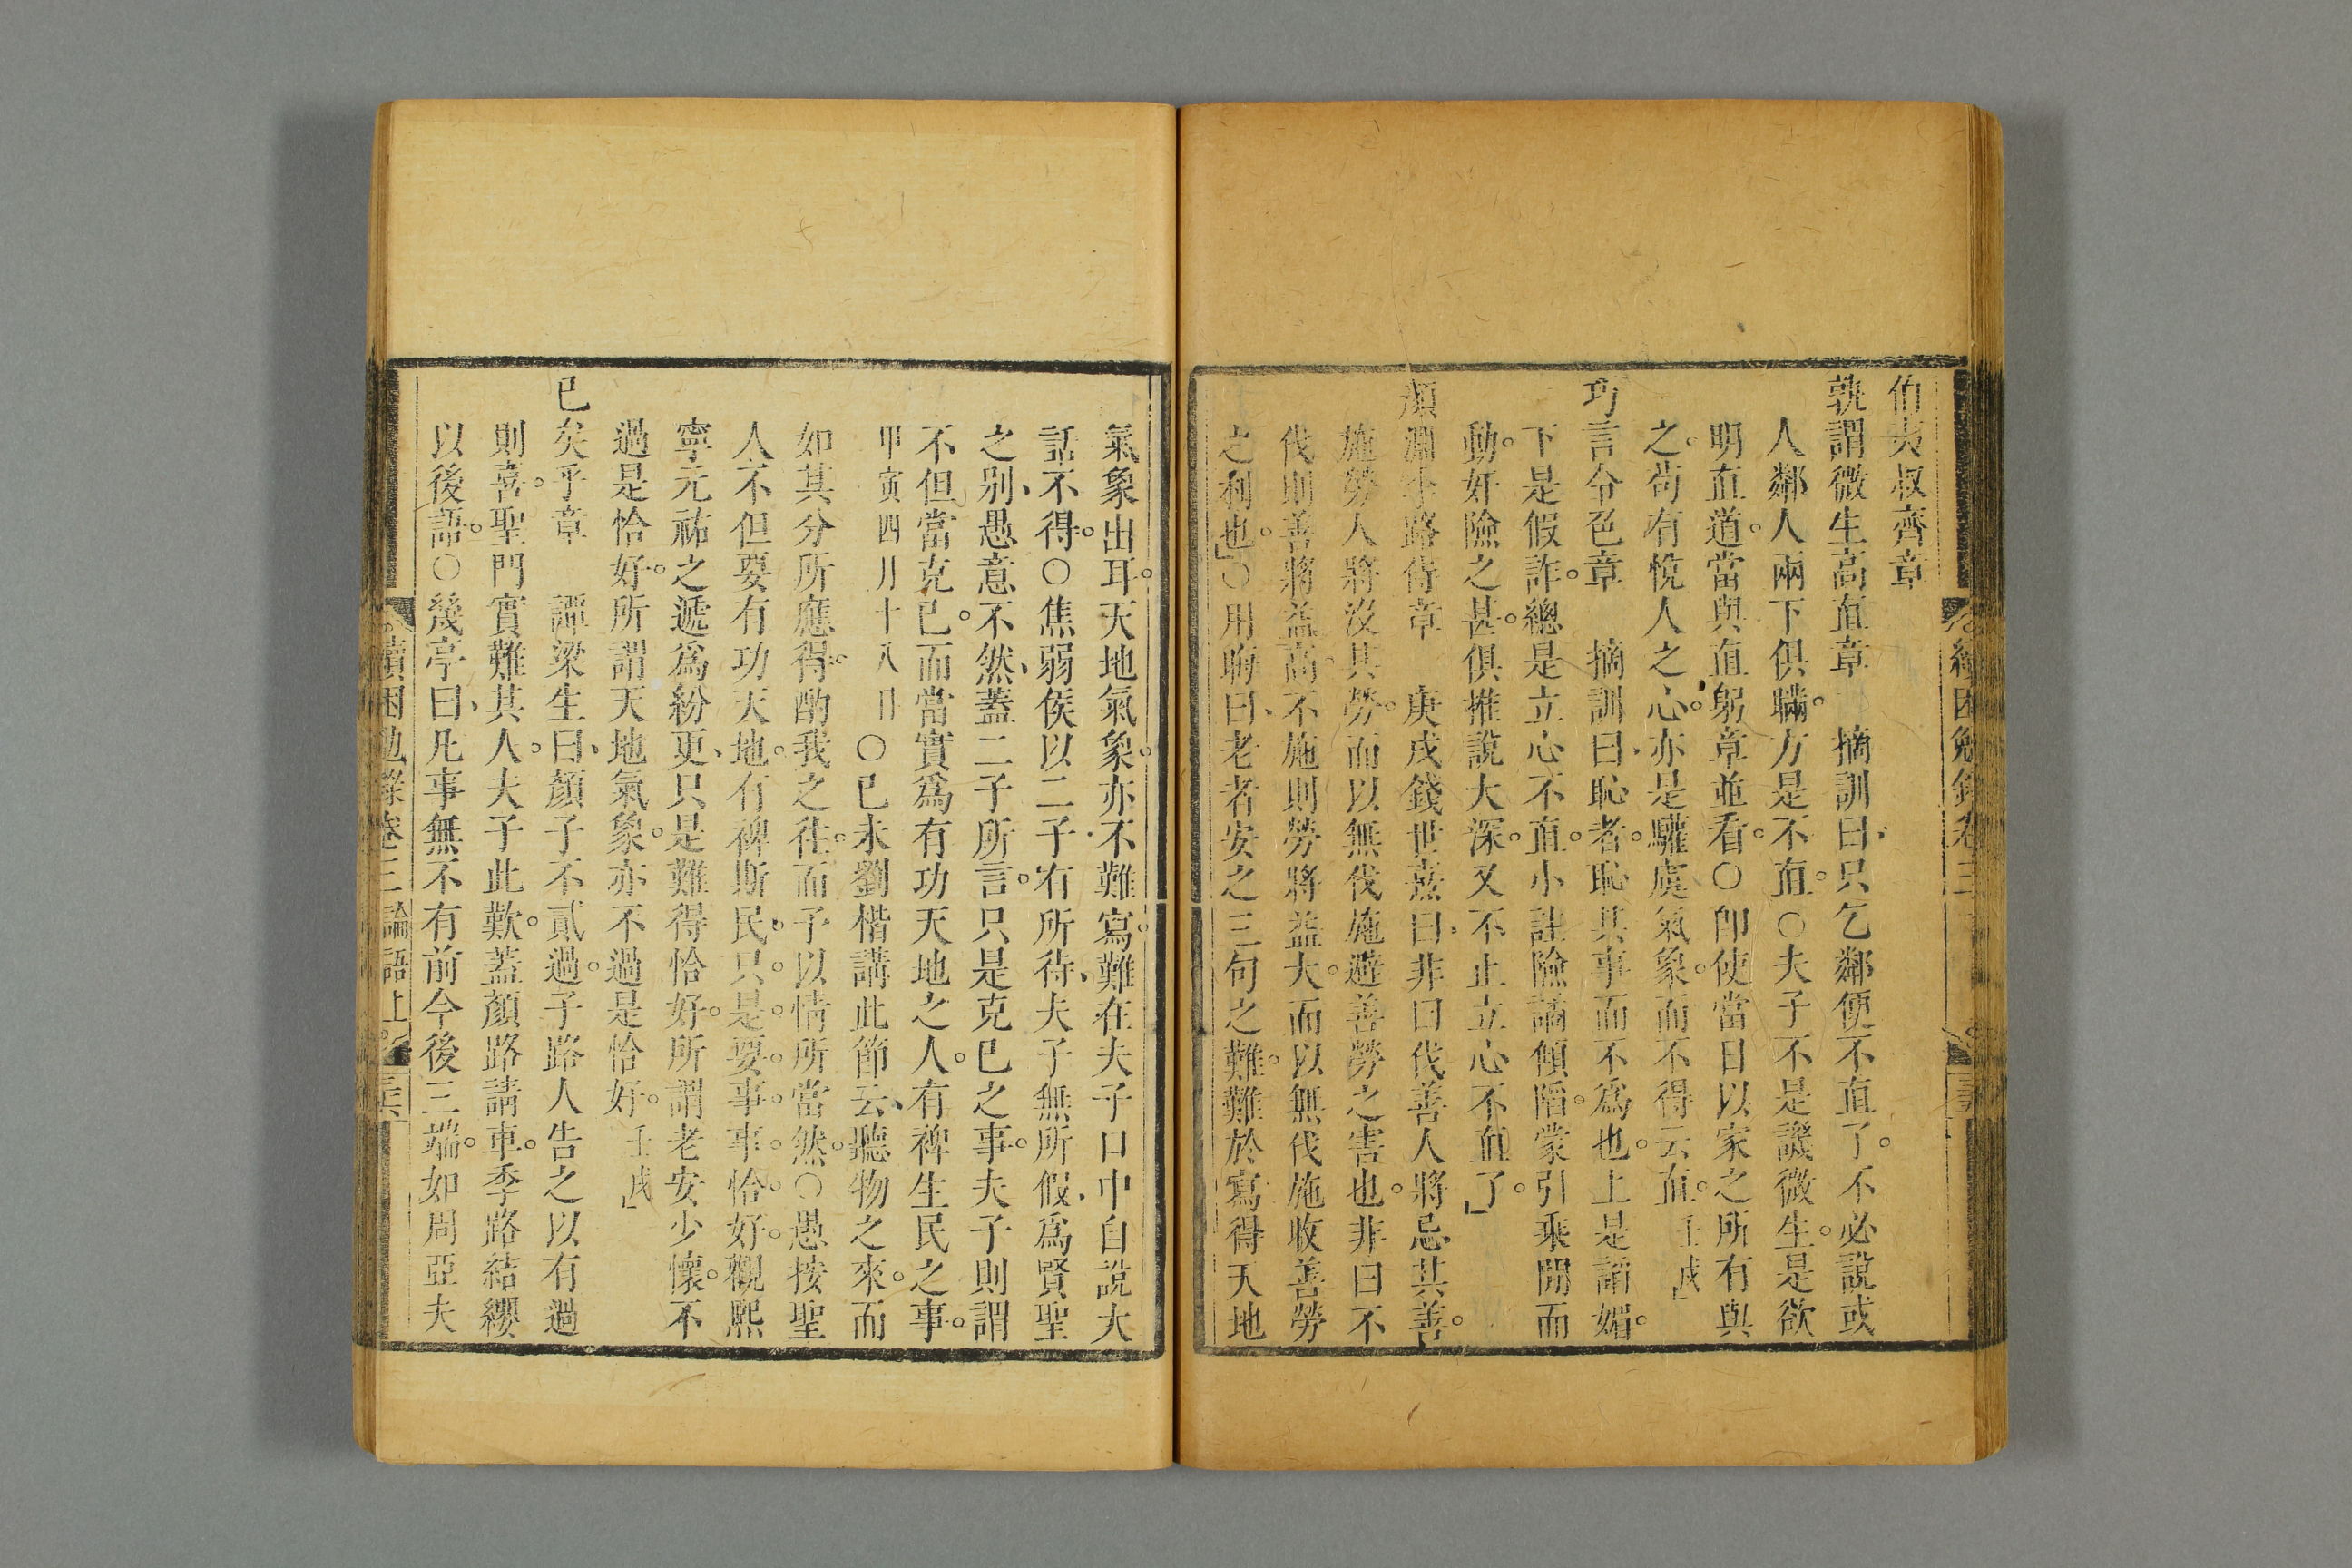 伯夷叔齊章
孰謂微生高直章　摘訓曰只乞鄰便不直了不必說或
人鄰人兩下俱瞞方是不直○夫子不是譏微生是欲
明直道當與直躬章並看○卽使當日以家之所有與
之苟有悅人之心亦是驩虞氣象而不得云直壬戌
巧言令色章　摘訓曰恥者恥其事而不爲也上是諂媚
下是假詐總是立心不直小註險譎傾陷蒙引乘閒而
動奸險之甚俱推說大深又不止立心不直了
顏淵季路侍章　庚戌錢世熹曰非曰伐善人將忌其善
施勞人將沒其勞而以無伐施避善勞之害也非曰不
伐則善將益高不施則勞將益大而以無伐施收善勞
之利也○用晦曰老者安之三句之難難於寫得天地
氣象出耳天地氣象亦不難寫難在夫子口中自說大
話不得○焦弱侯以二子有所待夫子無所假爲賢聖
之别愚意不然蓋二子所言只是克已之事夫子則謂
不但當克已而當實爲有功天地之人有裨生民之事
甲寅四月十八日○已未劉楷講此節云聽物之來而
如其分所應得酌我之往而予以情所當然○愚按聖
人不但要有功天地有裨斯民只是要事事恰好觀熙
寧元祐之遞爲紛更只是難得恰好所謂老安少懷不
過是恰好所謂天地氣象亦不過是恰好壬戌
已矣乎章　譚梁生曰顏子不貳過子路人告之以有過
則喜聖門實難其人夫子此歎蓋顏路請車季路結纓
以後語○幾亭曰凡事無不有前今後三端如周亞夫
續困勉錄卷三 論語上 三六